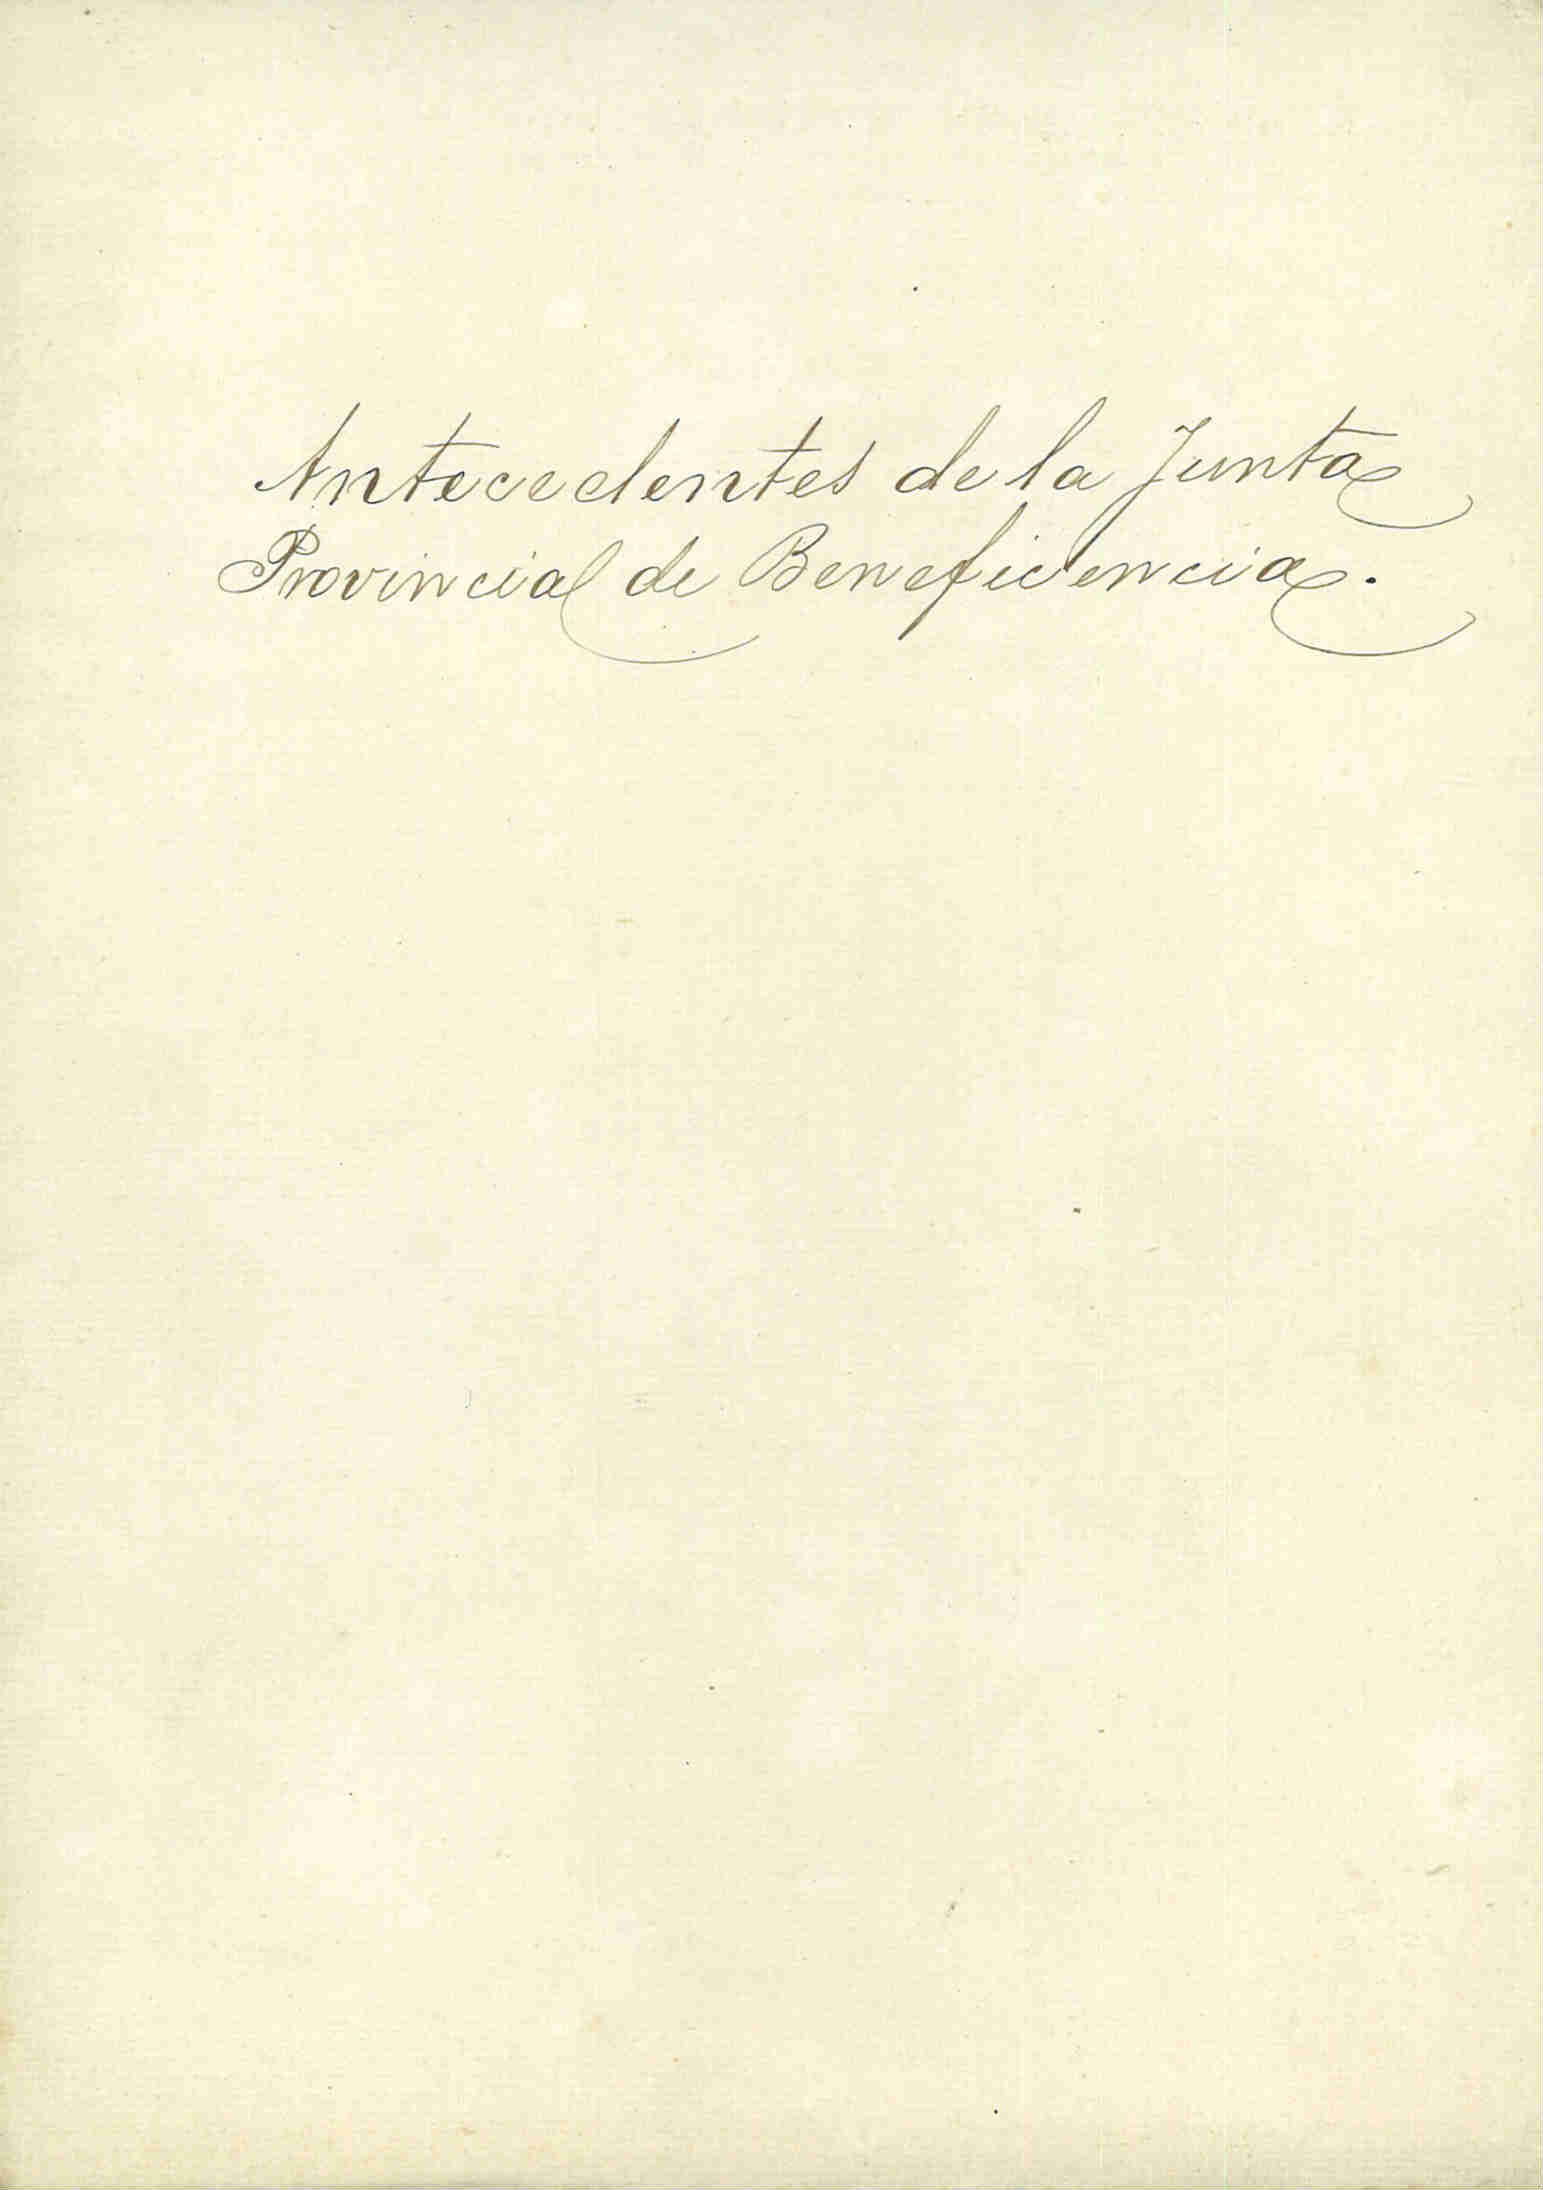 Antecedentes de la Junta
Provincial de Beneficencia.